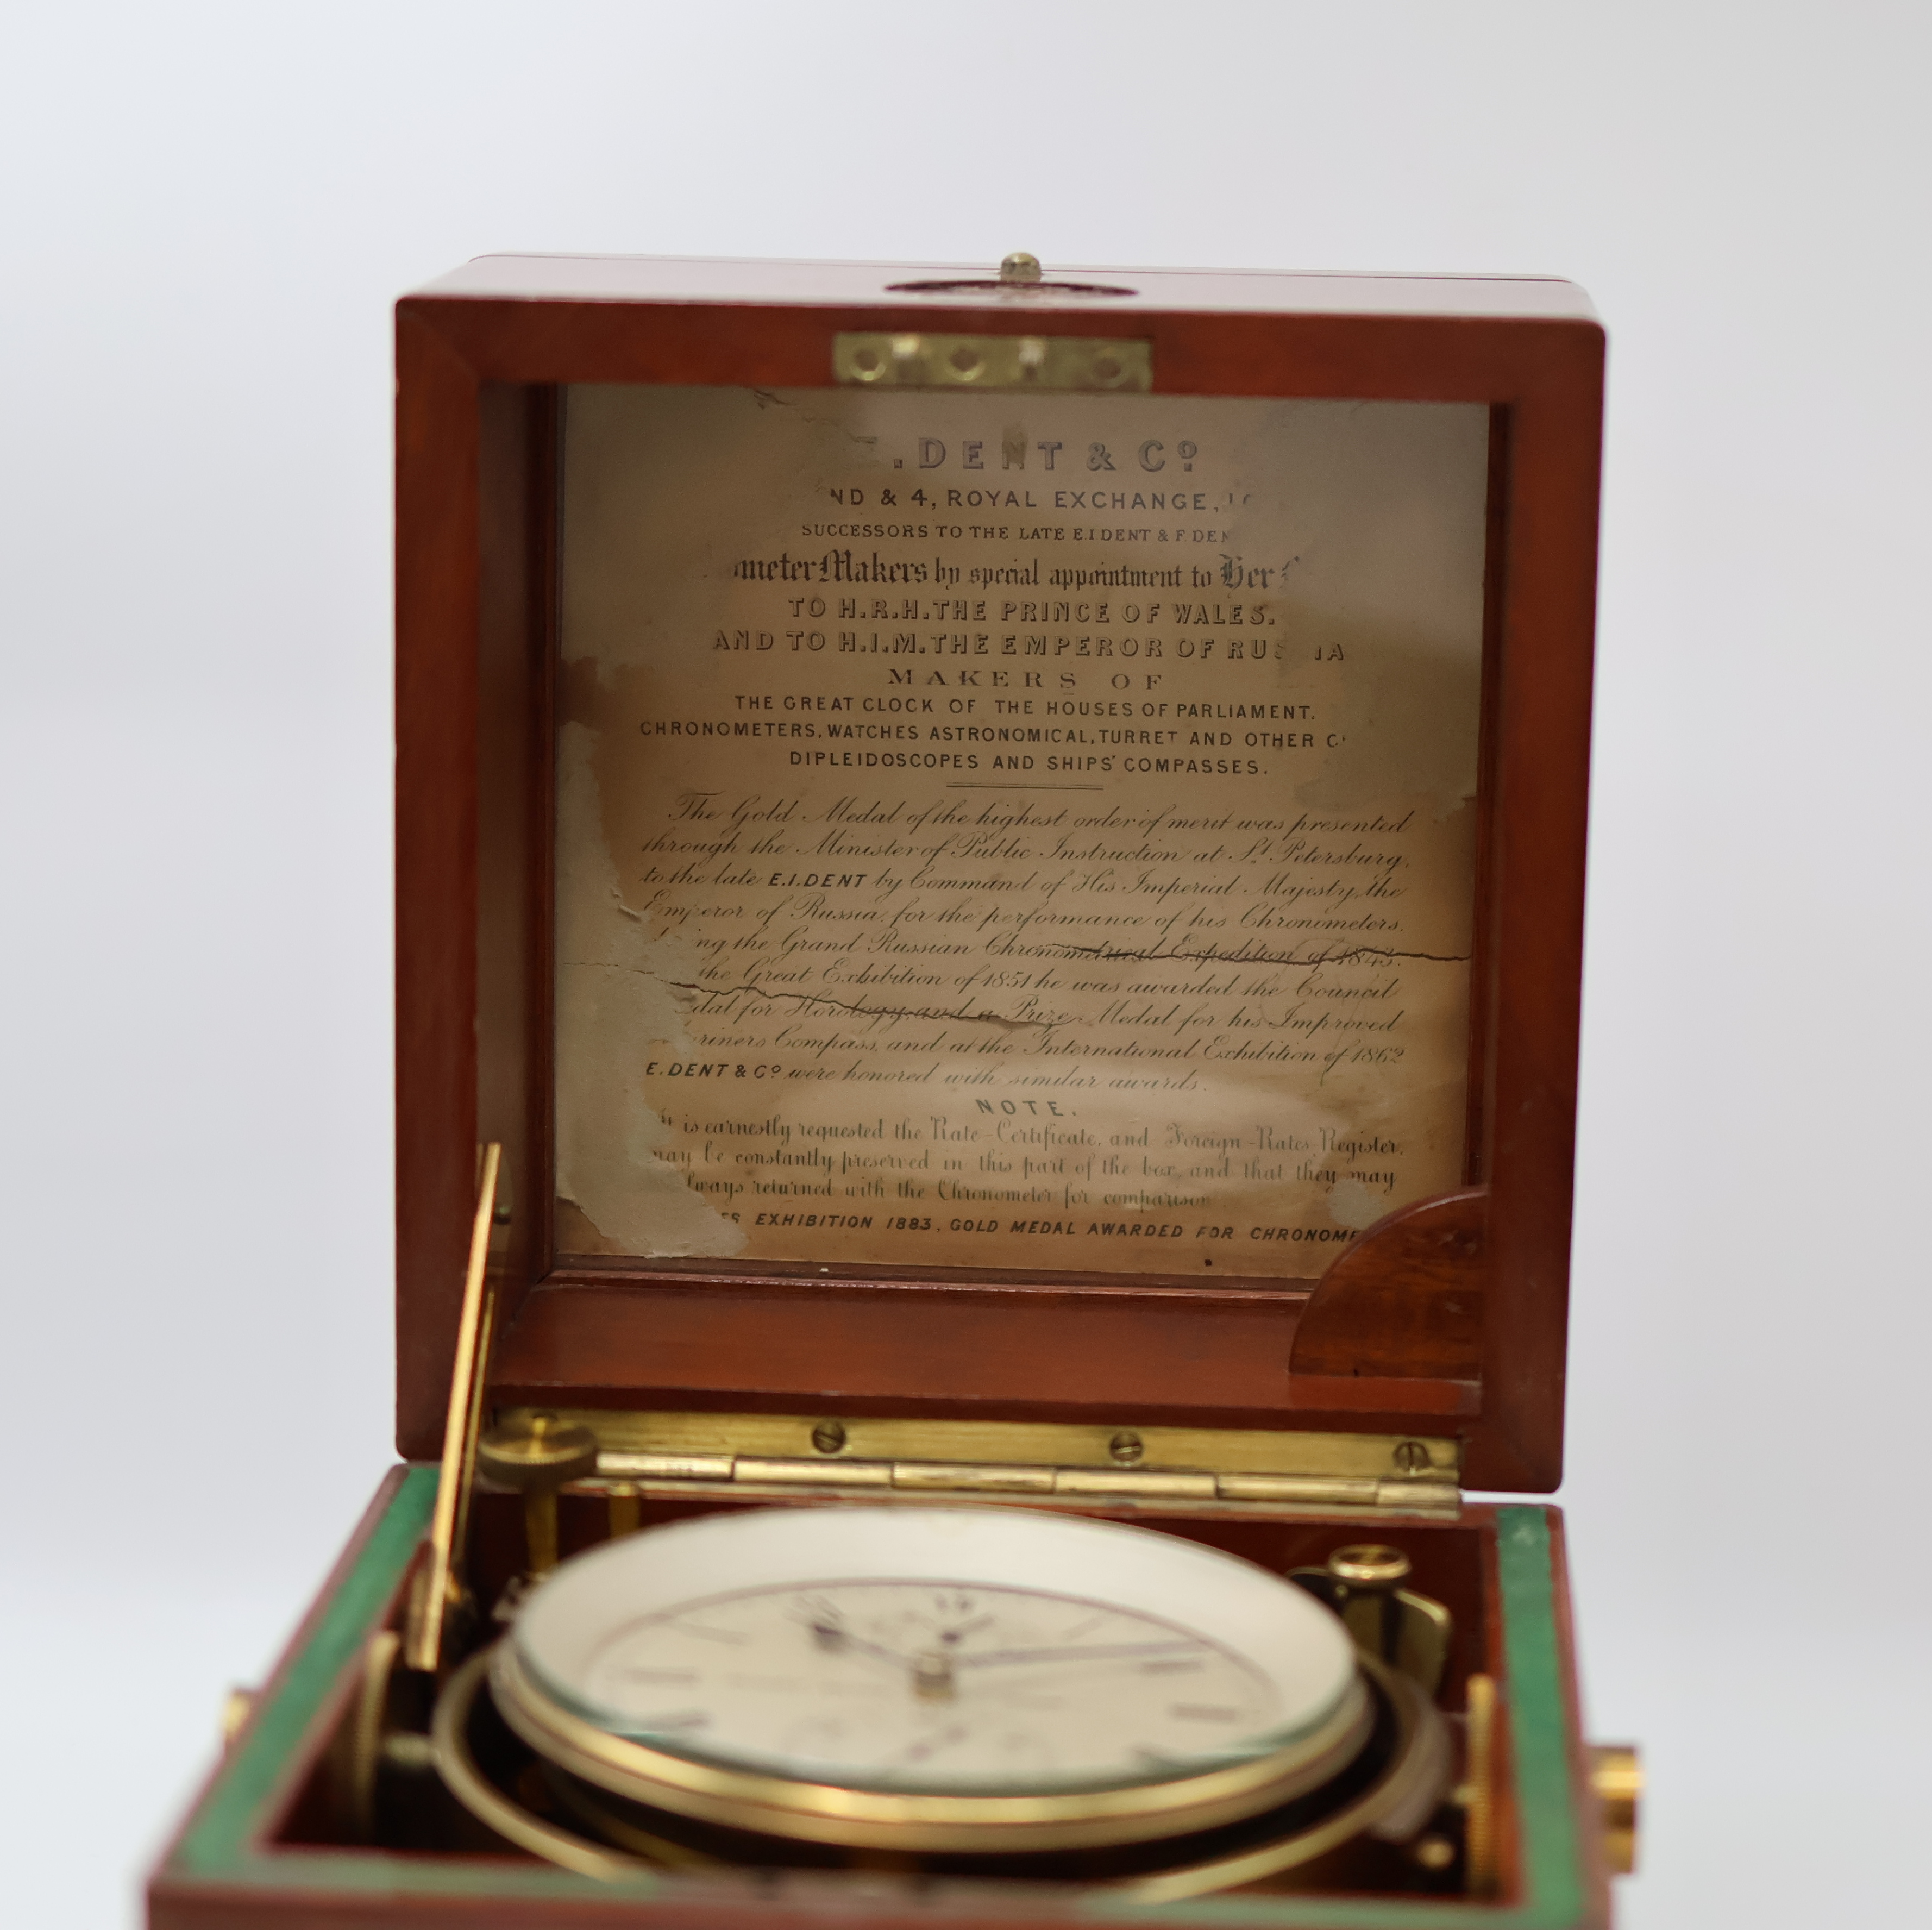 E. DENT & Cº
ND & 4, ROYAL EXCHANGE, LO
SUCCESSORS TO THE LATE E.I DENT & F. DEN
ometer Makers by special appointment to Her
TO H.R.H. THE PRINCE OF WALES.
AND TO H.I.M. THE EMPEROR OF RUS IA
MAKERS OF
THE GREAT CLOCK OF THE HOUSES OF PARLIAMENT.
CHRONOMETERS, WATCHES ASTRONOMICAL, TURRET AND OTHER C
DIPLEIDOSCOPES AND SHIPS' COMPASSES.
The Gold Medal of the highest order of merit was presented
through the Minister of Public Instruction at St. Petersburg,
to the late E.I. DENT by Command of His Imperial Majesty, the
Emperor of Russia, for the performance of his Chronometers,
ing the Grand Russian Chronometrical Expedition of 1843.
the Great Exhibition of 1851 he was awarded the Council
dal for Horology, and a Prize Medal for his Improved
riners Compass, and at the International Exhibition of 1862
E. DENT & Cº were honored with similar awards.
NOTE.
It is earnestly requested the Rate-Certificate, and Foreign-Rates Register,
may be constantly preserved in this part of the box, and that they may
lways returned with the Chronometer for comparison
ES EXHIBITION 1883, GOLD MEDAL AWARDED FOR CHRONOME